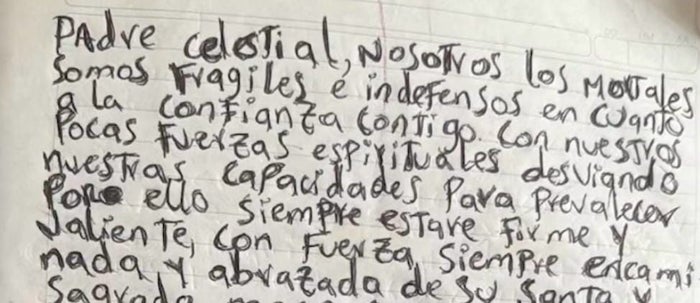 PAdre celestial, Nosotros los Mortales
somos Fragiles e indefensos en cuanto
a la confianza contigo, con nuestros
Pocas Fuerzas espirituales desviando
nuestras capacidades para prevalecer
Por ello siempre estare firme y
valiente, con Fuerza, siempre encami
nada, y abrazada de su santo y
Sagrado